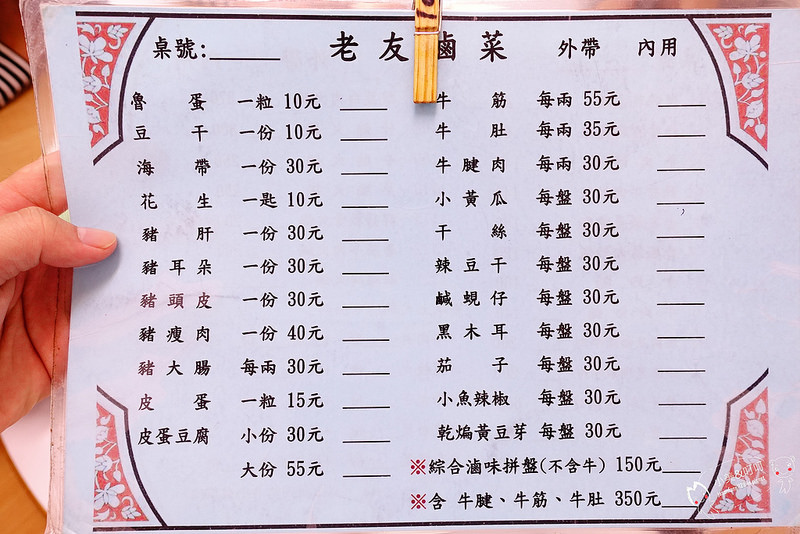 桌號:______ 老友鹵菜 外帶 內用
魯蛋 一粒 10元 ____
豆干 一份 10元 ____
海帶 一份 30元 ____
花生 一匙 10元 ____
豬肝 一份 30元 ____
豬耳朵 一份 30元 ____
豬頭皮 一份 30元 ____
豬瘦肉 一份 40元 ____
豬大腸 每兩 30元 ____
皮蛋 一粒 15元 ____
皮蛋豆腐 小份 30元 ____
大份 55元 ____
牛筋 每兩 55元 ____
牛肚 每兩 35元 ____
牛腱肉 每兩 30元 ____
小黃瓜 每盤 30元 ____
干絲 每盤 30元 ____
辣豆干 每盤 30元 ____
鹹蜆仔 每盤 30元 ____
黑木耳 每盤 30元 ____
茄子 每盤 30元 ____
小魚辣椒 每盤 30元 ____
乾煸黃豆芽 每盤 30元 ____
※綜合滷味拼盤(不含牛) 150元____
※含 牛腱、牛筋、牛肚 350元____